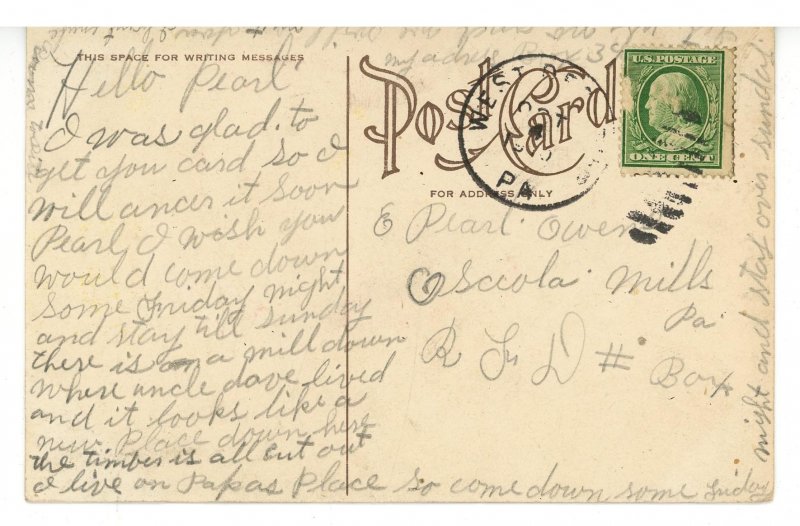 THIS SPACE FOR WRITING MESSAGES
Hello Pearl
I was glad to
get you card so I
will ancer it soon
Pearl I wish you
would come down
some Friday night
and stay till sunday
there is a mill down
where uncle dave lived
and it looks like a
new Place down here
the timber is all cut out
I live on Papas Place so come down some Friday
night and stay over sunday
my adress Box 39
Post Card
FOR ADDRESS ONLY
U.S. POSTAGE
ONE CENT
WEST
PA
Pearl Owens
Osceola Mills
Pa
R F D #
Box